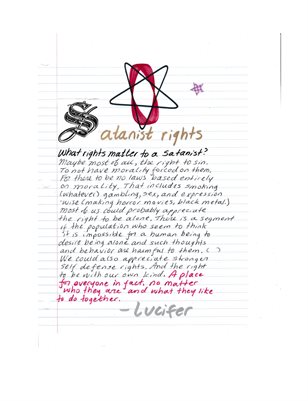 Satanist rights
What rights matter to a Satanist?
Maybe most of all, the right to sin.
To not have morality forced on them,
For there to be no laws based entirely
on morality. That includes smoking
(whatever) gambling, sex, and expression
wise (making horror movies, black metal.)
Most of us could probably appreciate
the right to be alone. There is a segment
of the population who seem to think
it is impossible for a human being to
desire being alone and such thoughts
and behavior are harmful to them. ( )
We could also appreciate stronger
Self defense rights. And the right
to be with our own kind. A place
for everyone in fact, no matter
who they are and what they like
to do together.
- Lucifer